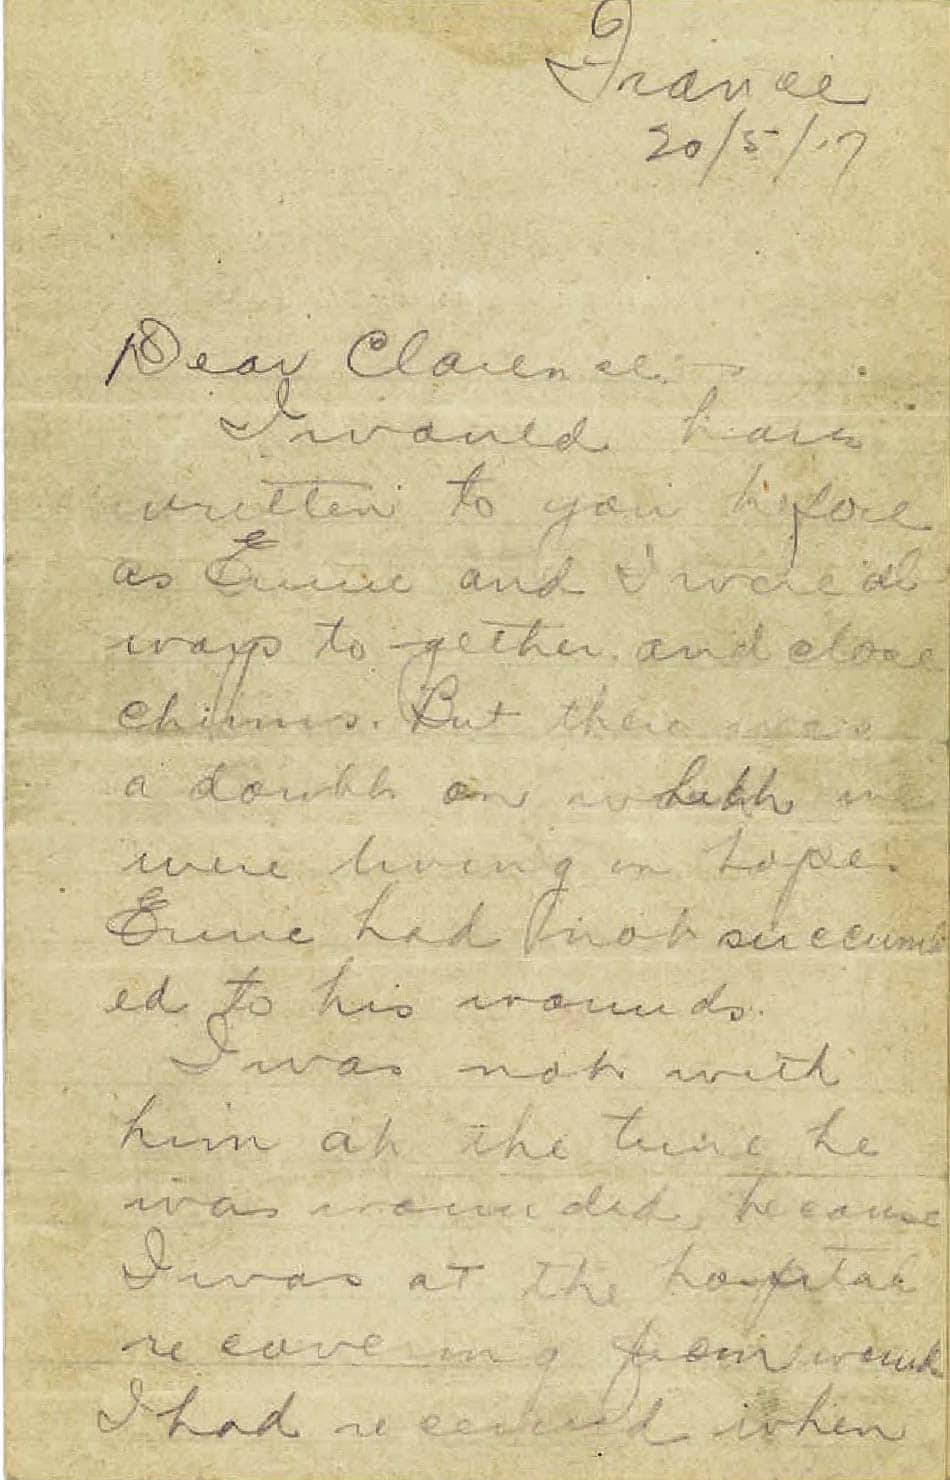 France
20/5/17
Dear Clarence
I would have
written to you before
as Ernie and I were al
ways to gether and close
chums. But there was
a doubt on which we
were living in hope.
Ernie had not succumb
ed to his wounds.
I was not with
him at the time he
was wounded, because
I was at the hospital
recovering from wounds
I had received when